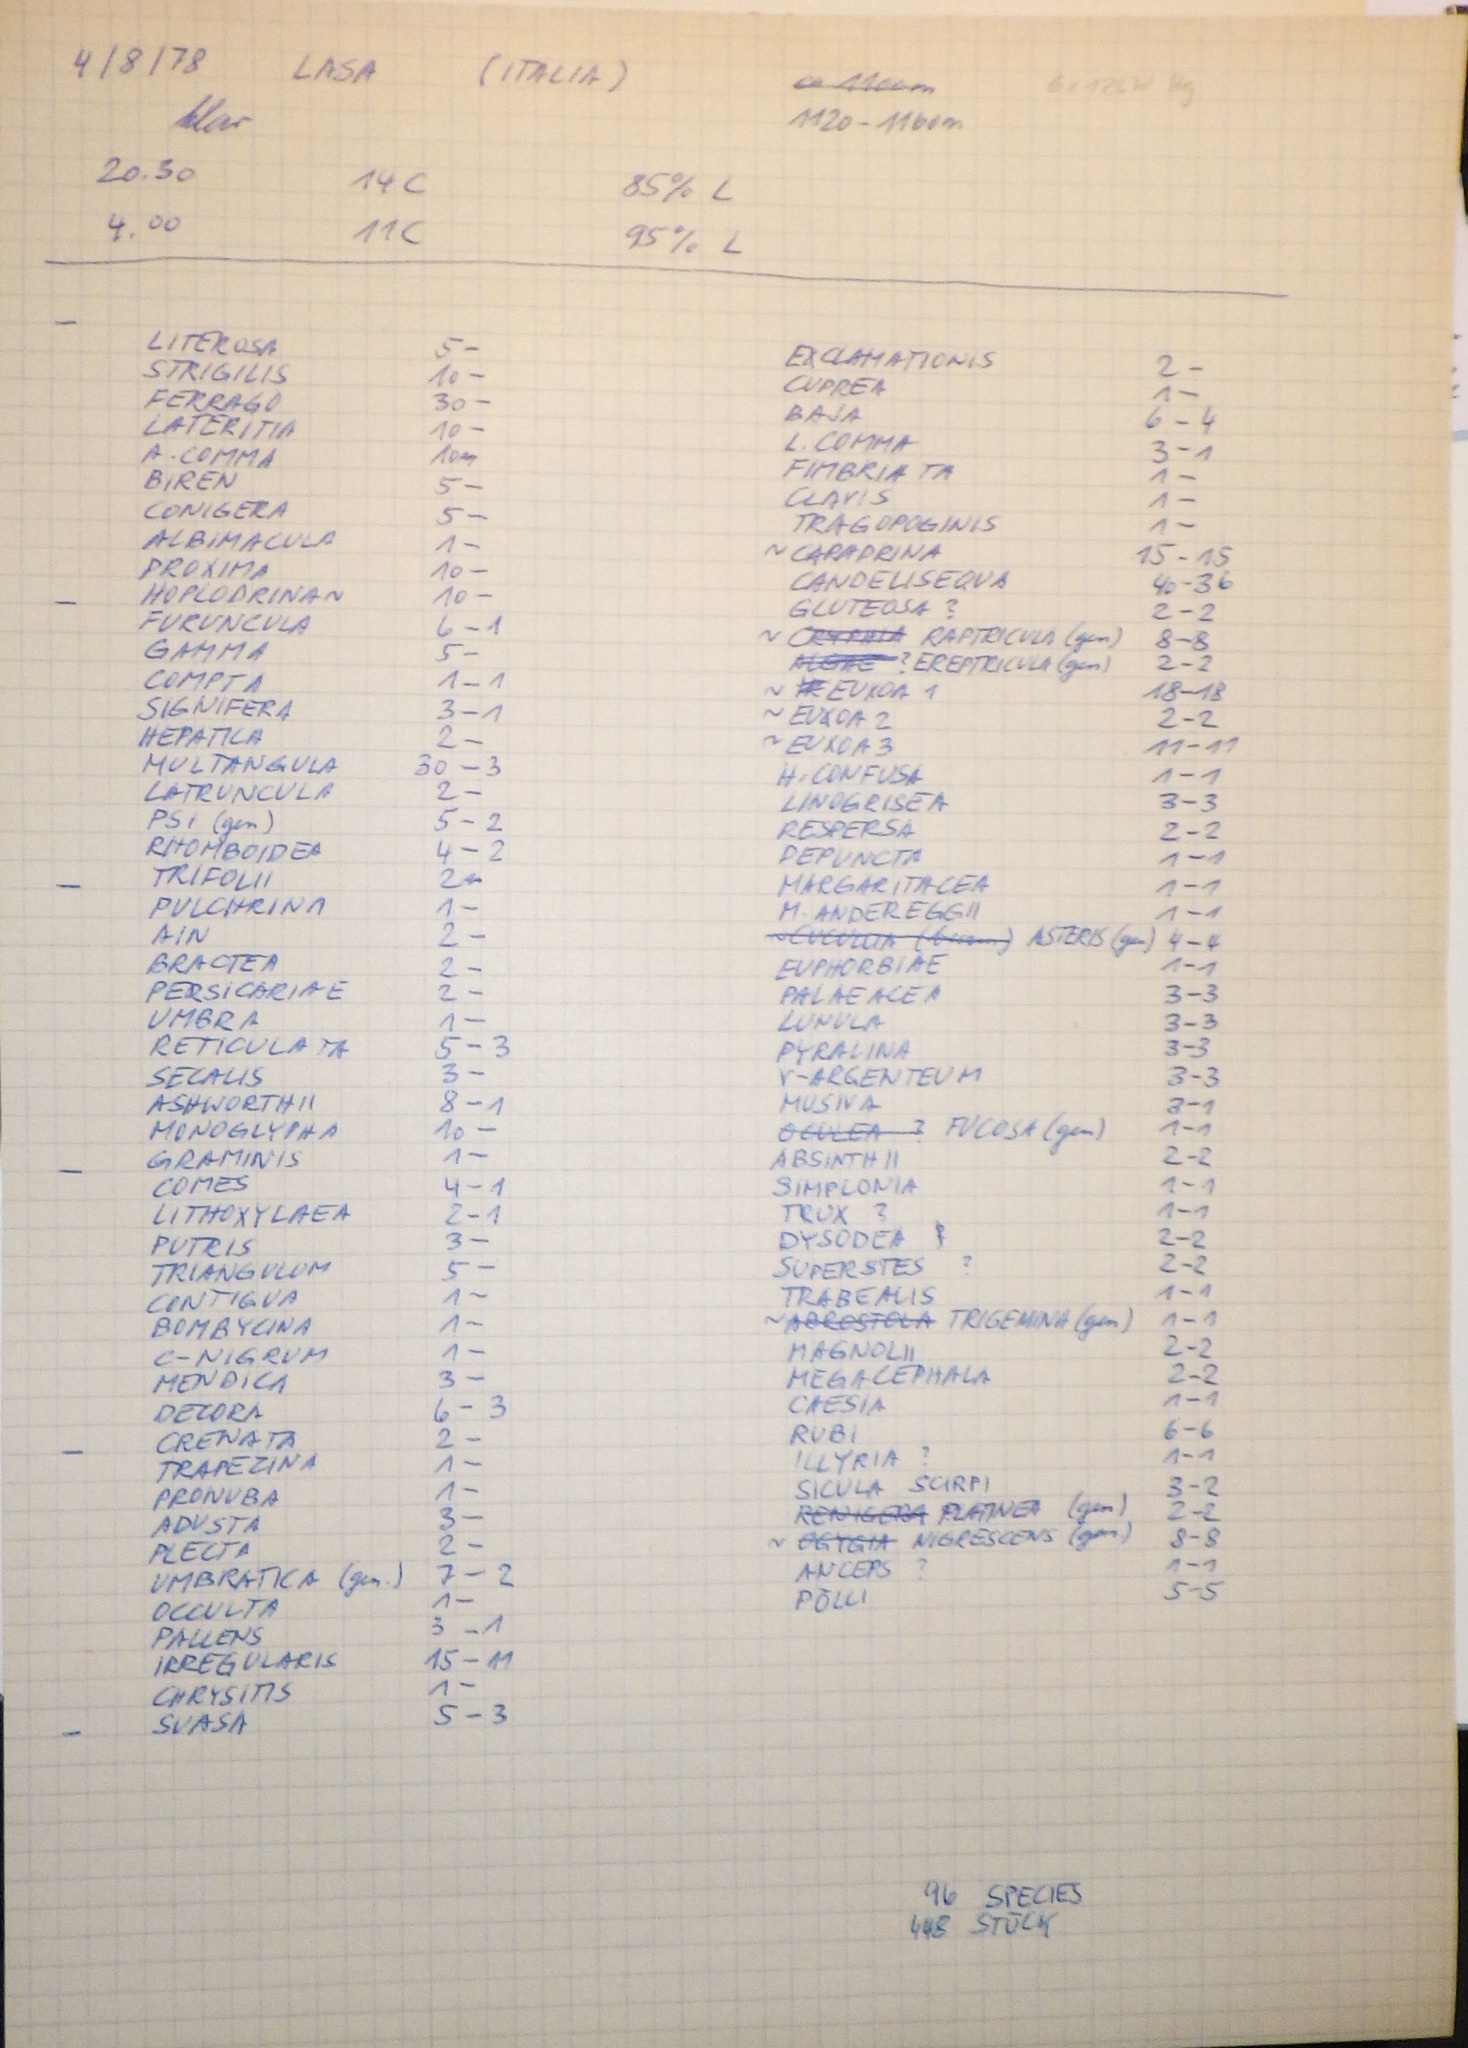 4/8/78 LASA (ITALIA) ca 1100m 6x125W Hg
klar 1120-1160m
20.30 14C 85% L
4.00 11C 95% L
LITEROSA 5-
STRIGILIS 10-
FERRAGO 30-
LATERITIA 10-
A. COMMA 10m
BIREN 5-
CONIGERA 5-
ALBIMACULA 1-
PROXIMA 10-
HOPLODRINA~ 10-
FURUNCULA 6-1
GAMMA 5-
COMPTA 1-1
SIGNIFERA 3-1
HEPATICA 2-
MULTANGULA 30-3
LATRUNCULA 2-
PSI (gen) 5-2
RHOMBOIDEA 4-2
TRIFOLII 2-
PULCHRINA 1-
AIN 2-
BRACTEA 2-
PERSICARIAE 2-
UMBRA 1-
RETICULATA 5-3
SECALIS 3-
ASHWORTHII 8-1
MONOGLYPHA 10-
GRAMINIS 1-
COMES 4-1
LITHOXYLAEA 2-1
PUTRIS 3-
TRIANGULUM 5-
CONTIGUA 1-
BOMBYCINA 1-
C-NIGRUM 1-
MENDICA 3-
DECORA 6-3
CRENATA 2-
TRAPEZINA 1-
PRONUBA 1-
ADUSTA 3-
PLECTA 2-
UMBRATICA (gen.) 7-2
OCCULTA 1-
PALLENS 3-1
IRREGULARIS 15-11
CHRYSITIS 1-
SUASA 5-3
EXCLAMATIONIS 2-
CUPREA 1-
BAJA 6-4
L. COMMA 3-1
FIMBRIATA 1-
CLAVIS 1-
TRAGOPOGINIS 1-
~ CARADRINA 15-15
CANDELISEQUA 40-36
GLUTEOSA ? 2-2
~ CRYPHIA RAPTRICULA (gen) 8-8
ALGAE ? EREPTRICULA (gen) 2-2
~ EUXOA 1 18-18
~ EUXOA 2 2-2
~ EUXOA 3 11-11
H. CONFUSA 1-1
LINOGRISEA 3-3
RESPERSA 2-2
DEPUNCTA 1-1
MARGARITACEA 1-1
M. ANDEREGGII 1-1
~ CUCULLIA ASTERIS (gen) 4-4
EUPHORBIAE 1-1
PALAEACEA 3-3
LUNULA 3-3
PYRALINA 3-3
V-ARGENTEUM 3-3
MUSIVA 3-1
OCULEA ? FUCOSA (gen) 1-1
ABSINTHII 2-2
SIMPLONIA 1-1
TRUX ? 1-1
DYSODEA 2-2
SUPERSTES ? 2-2
TRABEALIS 1-1
~ ABROSTOLA TRIGEMINA (gen) 1-1
MAGNOLII 2-2
MEGACEPHALA 2-2
CAESIA 1-1
RUBI 6-6
ILLYRIA ? 1-1
SICULA SCIRPI 3-2
RENIGERA PLATINEA (gen) 2-2
~ OGYGIA NIGRESCENS (gen) 8-8
ANCEPS ? 1-1
PÖLLI 5-5
96 SPECIES
448 STÜCK